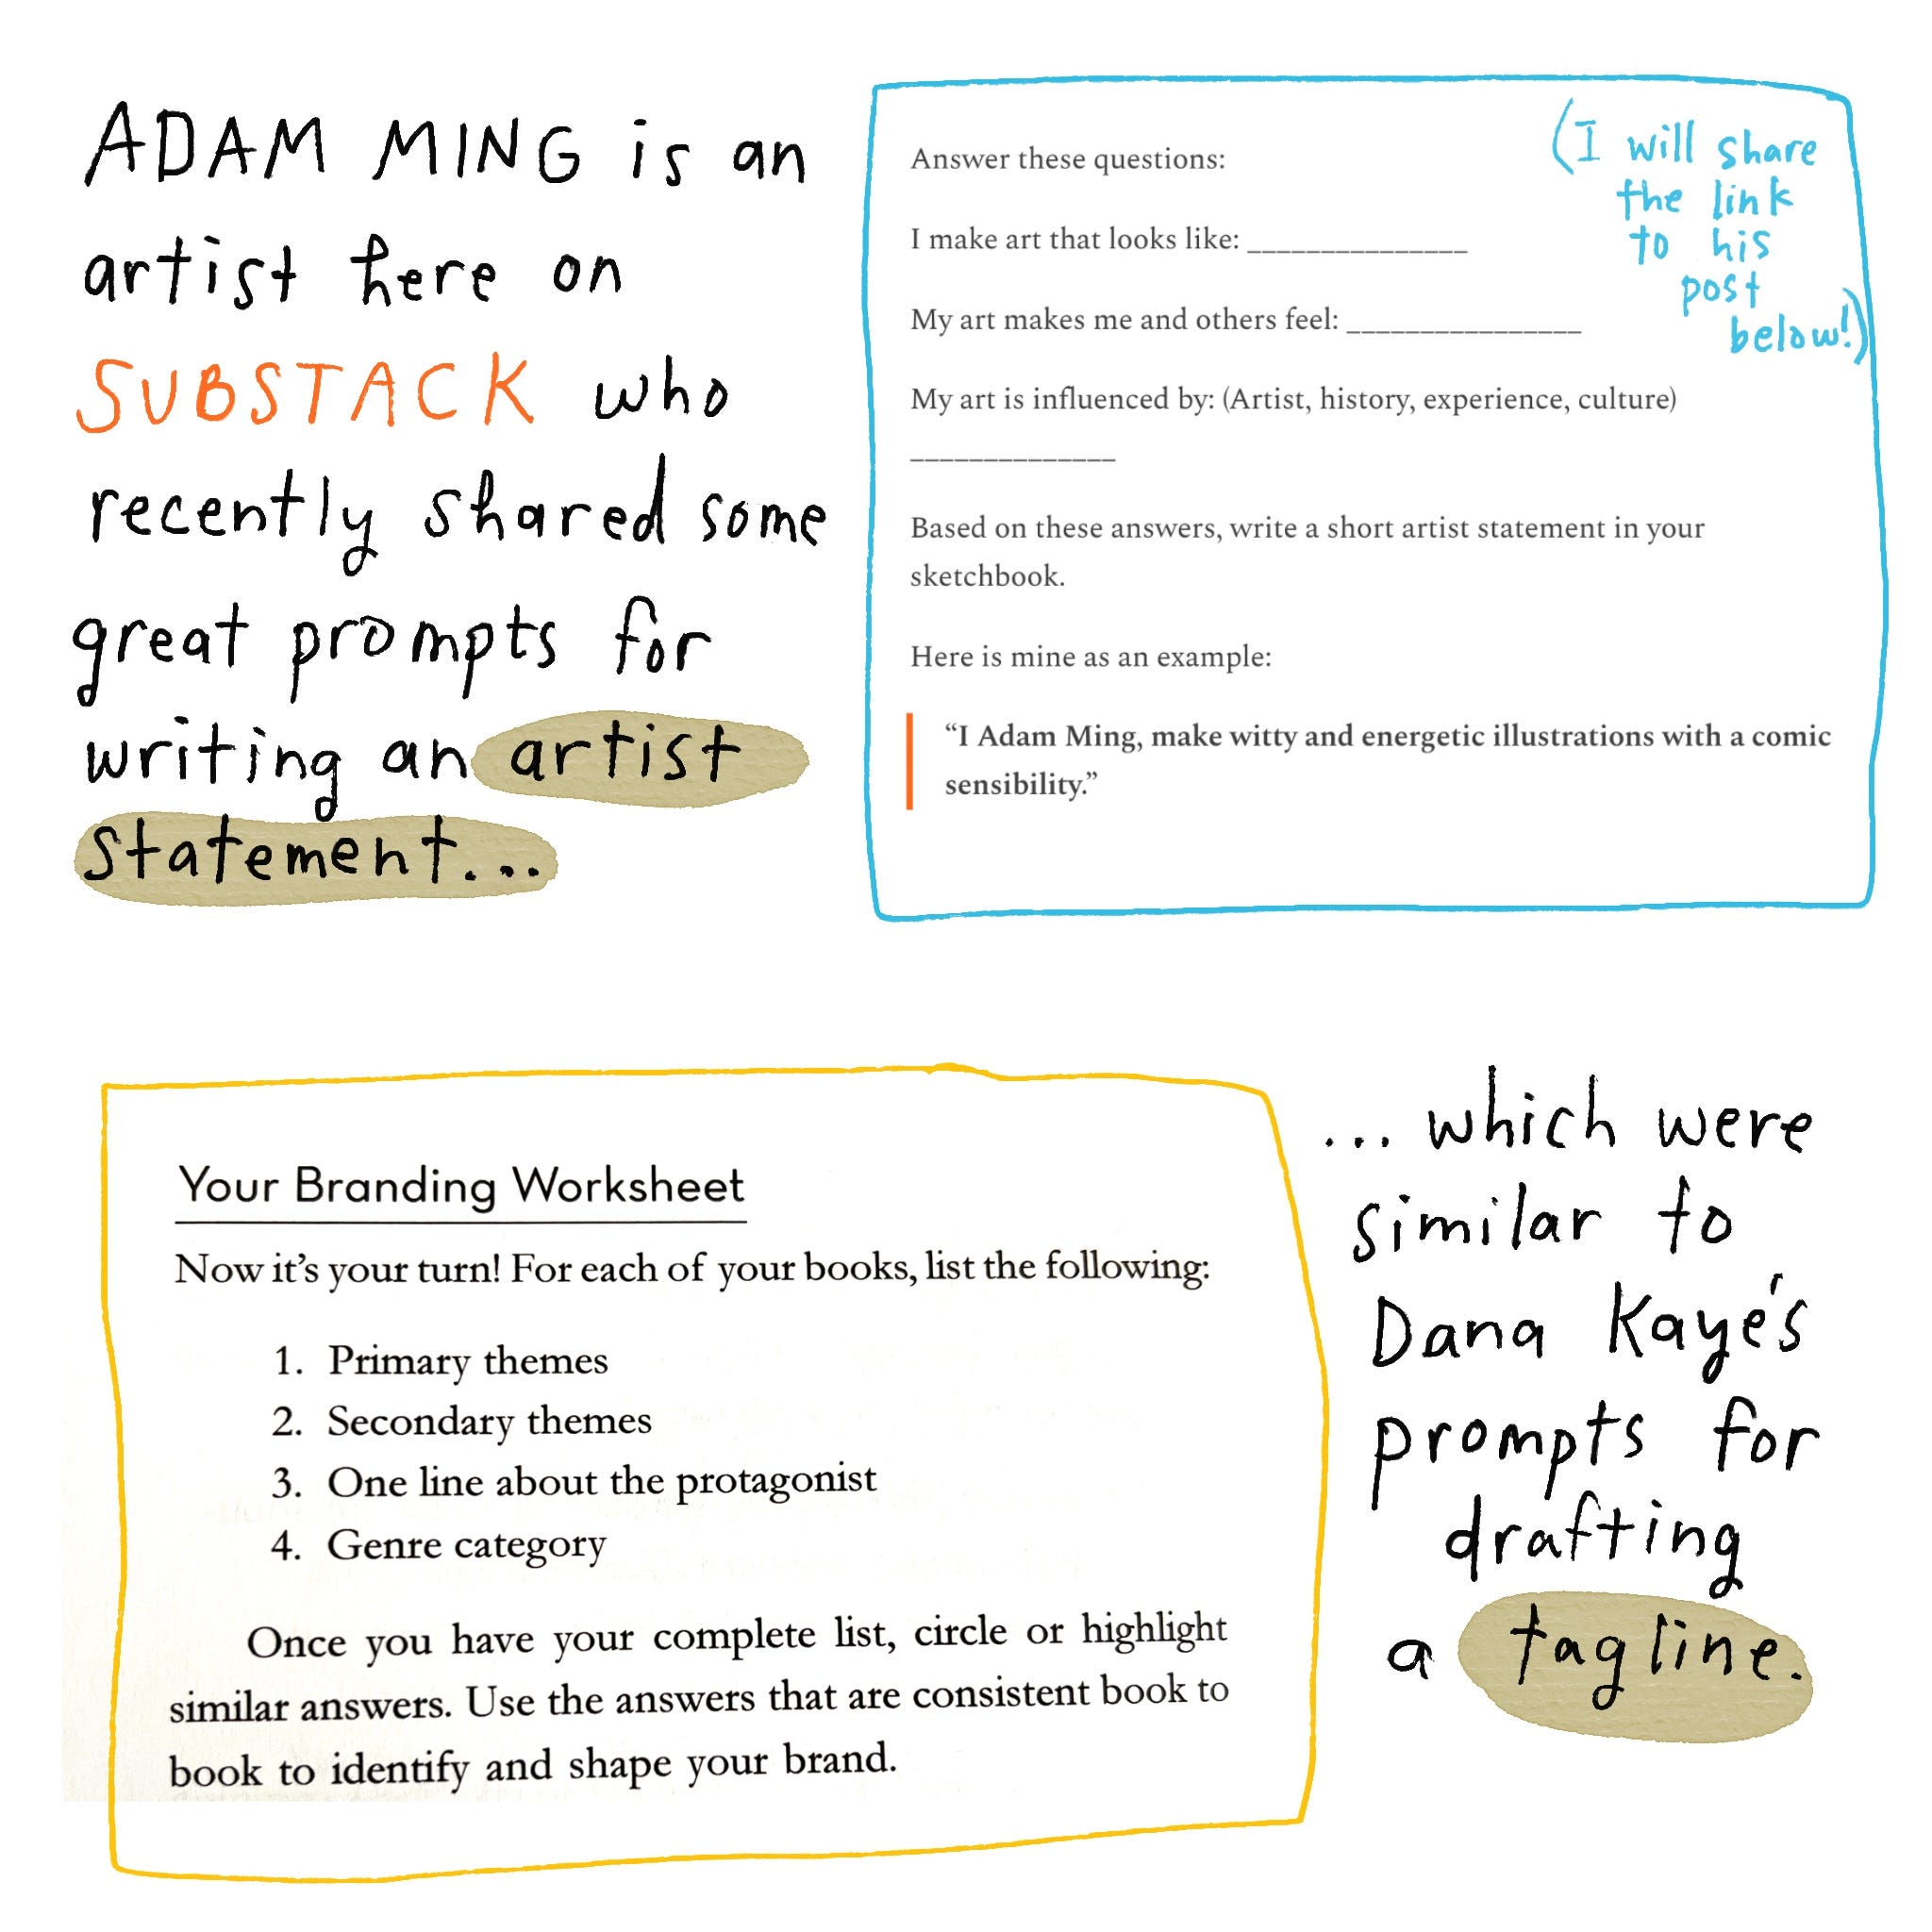 ADAM MING is an
artist here on
SUBSTACK who
recently shared some
great prompts for
writing an artist
statement...
(I will share
the link
to his
post
below!)
Answer these questions:
I make art that looks like: _______________
My art makes me and others feel: ________________
My art is influenced by: (Artist, history, experience, culture)
______________
Based on these answers, write a short artist statement in your
sketchbook.
Here is mine as an example:
“I Adam Ming, make witty and energetic illustrations with a comic
sensibility.”
Your Branding Worksheet
Now it’s your turn! For each of your books, list the following:
1. Primary themes
2. Secondary themes
3. One line about the protagonist
4. Genre category
Once you have your complete list, circle or highlight
similar answers. Use the answers that are consistent book to
book to identify and shape your brand.
... which were
similar to
Dana Kaye's
prompts for
drafting
a tagline.